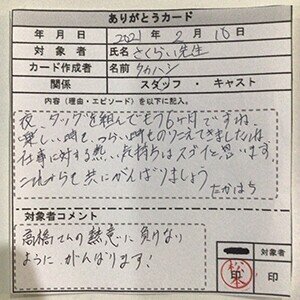 ありがとうカード
年月日 2021年2月18日
対象者 氏名 さくらい先生
カード作成者 名前 タカハシ
関係 スタッフ・キャスト
内容(理由・エピソード)を以下に記入。
夜、タッグを組んでもう6ヶ月ですね。
楽しい時もつらい時ものりこえてきましたね
仕事に対する熱い気持ちはスゴイと思います。
これからも共にがんばりましょう
たかはち
対象者コメント
高橋さんの熱意に負けない
ように がんばります!
対象者
印 印